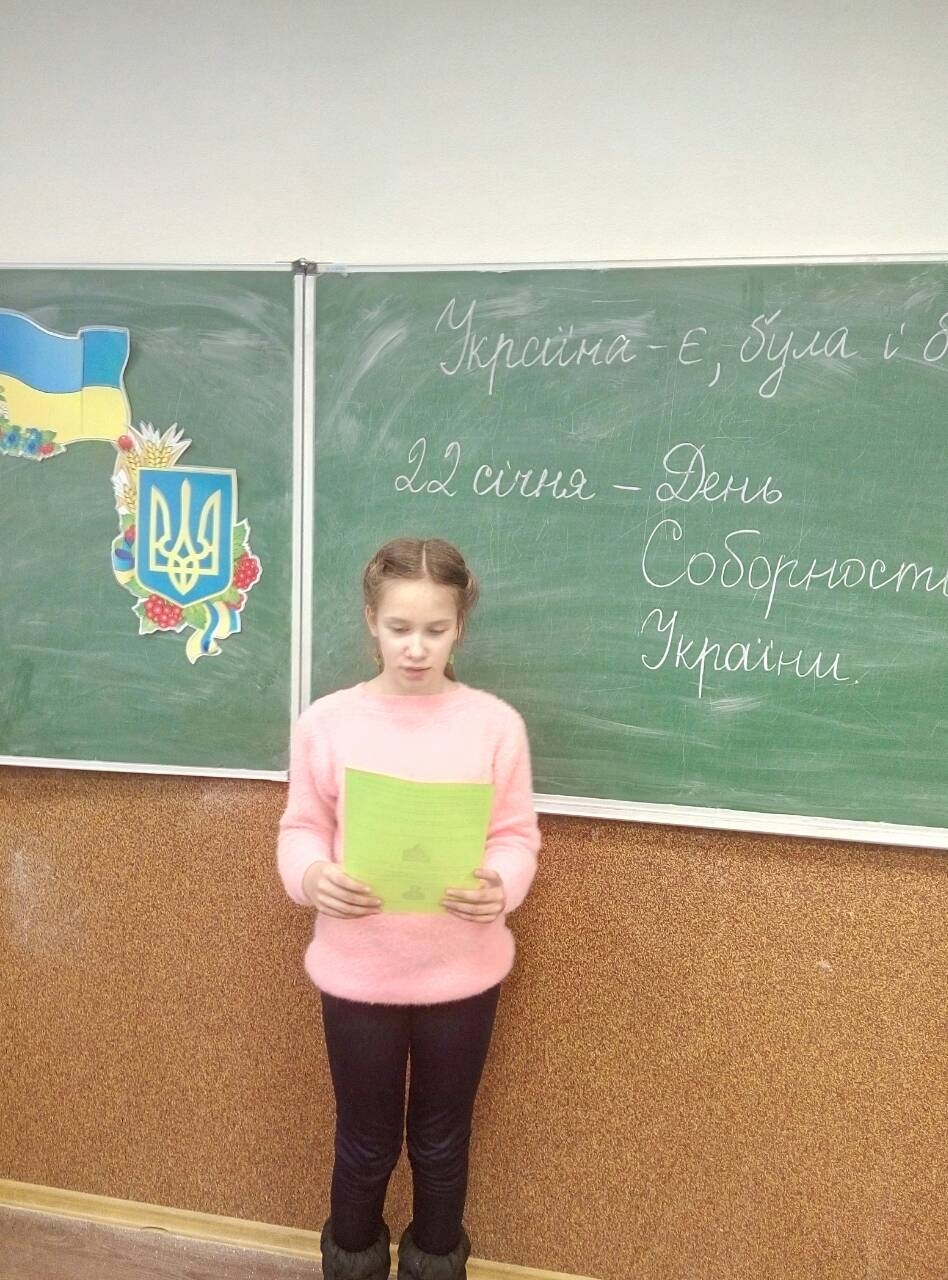 Україна - є, була і б
22 січня – День
Соборності
України.